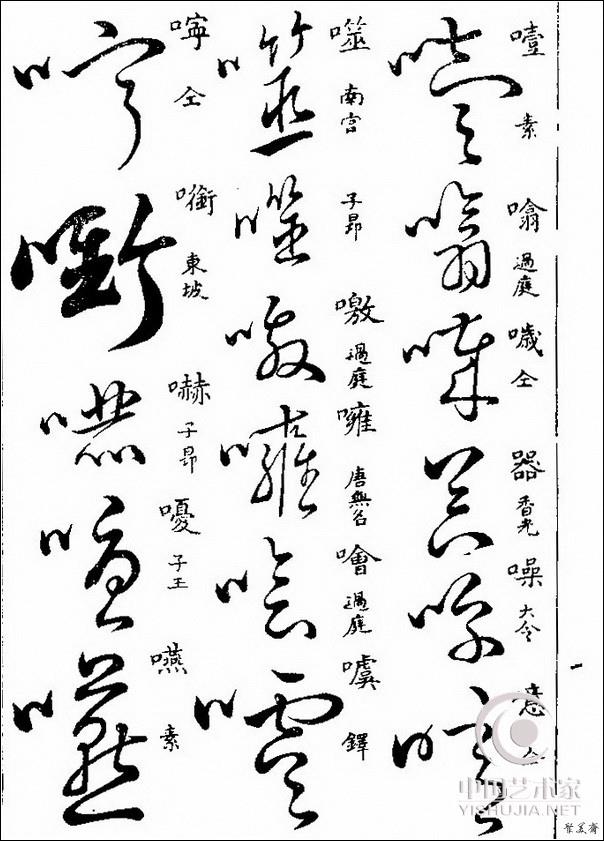 噎 素
噏 過庭
噦 仝
器 香光
噪 大令
噫
噬 南宫
子昂
噭 過庭
噰 唐無名
噲 過庭
噳 鐸
嚀 仝
㘅 東坡
嚇 子昂
嚘
嚥 素
中国艺术家
YISHUJIA.NET